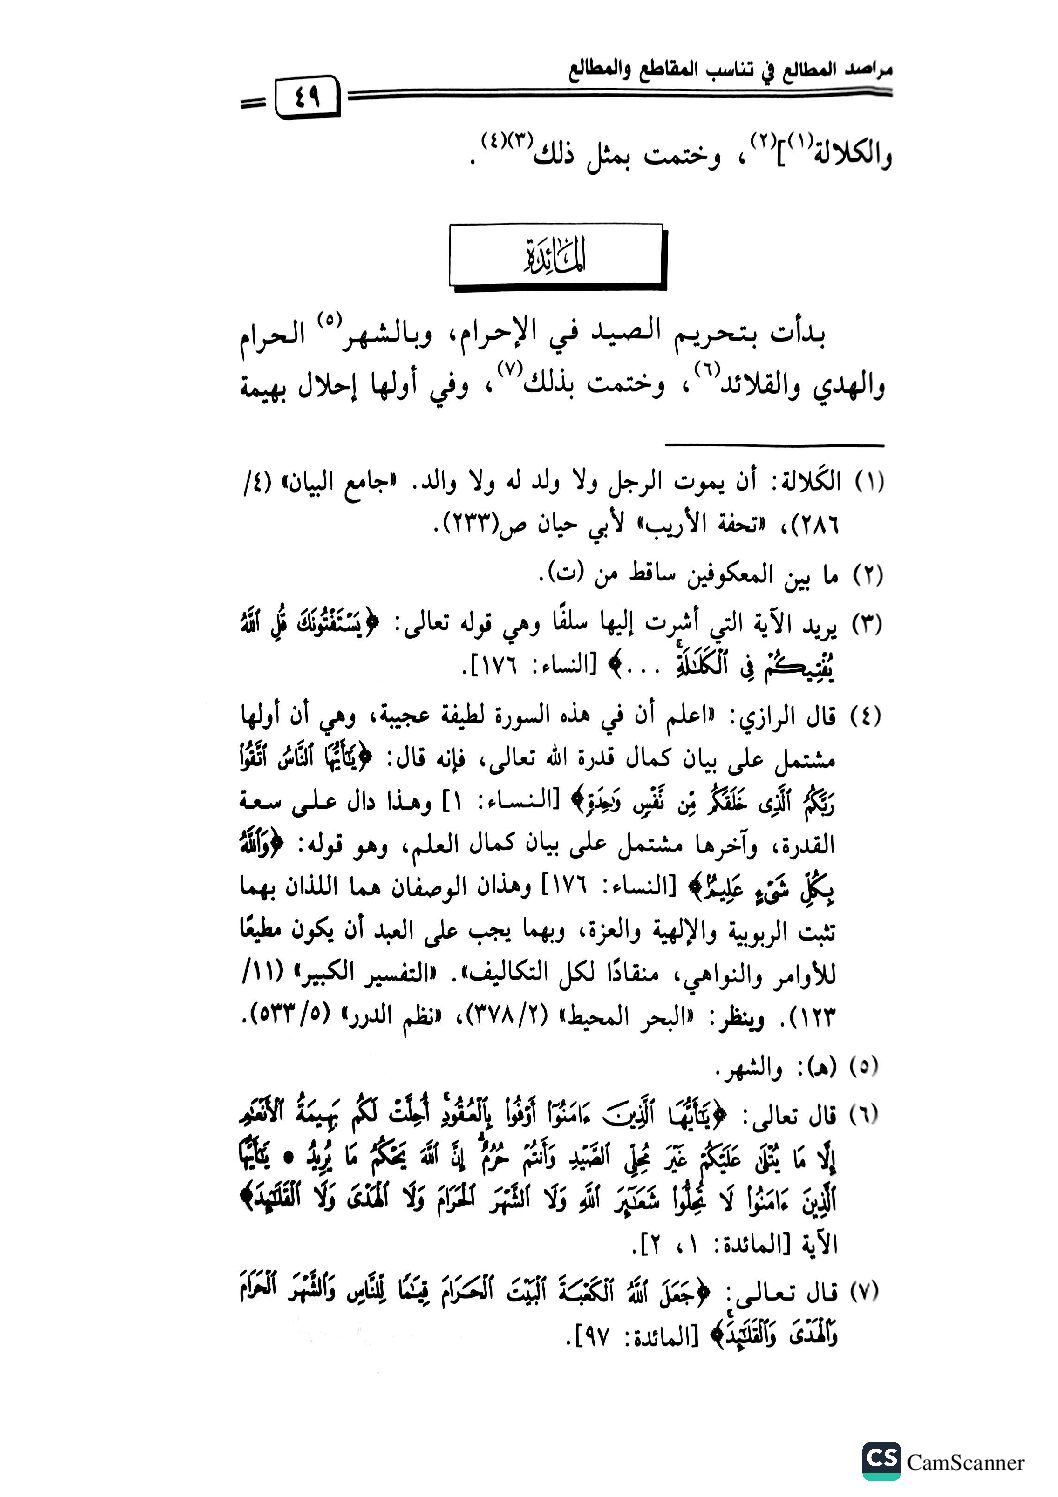 مراصد المطالع في تناسب المقاطع والمطالع
٤٩
والكلالة(١)](٢)، وختمت بمثل ذلك(٣)(٤).
المائدة
بدأت بتحريم الصيد في الإحرام، وبالشهر(٥) الحرام
والهدي والقلائد(٦)، وختمت بذلك(٧)، وفي أولها إحلال بهيمة
(١) الكَلالة: أن يموت الرجل ولا ولد له ولا والد. «جامع البيان» (٤/
٢٨٦)، «تحفة الأريب» لأبي حيان ص(٢٣٣).
(٢) ما بين المعكوفين ساقط من (ت).
(٣) يريد الآية التي أشرت إليها سلفًا وهي قوله تعالى: ﴿يَسْتَفْتُونَكَ قُلِ ٱللَّهُ
يُفْتِيكُمْ فِى ٱلْكَلَـٰلَةِۚ ...﴾ [النساء: ١٧٦].
(٤) قال الرازي: «اعلم أن في هذه السورة لطيفة عجيبة، وهي أن أولها
مشتمل على بيان كمال قدرة الله تعالى، فإنه قال: ﴿يَـٰٓأَيُّهَا ٱلنَّاسُ ٱتَّقُوا۟
رَبَّكُمُ ٱلَّذِى خَلَقَكُم مِّن نَّفْسٍ وَٰحِدَةٍ﴾ [النساء: ١] وهذا دال على سعة
القدرة، وآخرها مشتمل على بيان كمال العلم، وهو قوله: ﴿وَٱللَّهُ
بِكُلِّ شَىْءٍ عَلِيمٌۢ﴾ [النساء: ١٧٦] وهذان الوصفان هما اللذان بهما
تثبت الربوبية والإلهية والعزة، وبهما يجب على العبد أن يكون مطيعًا
للأوامر والنواهي، منقادًا لكل التكاليف». «التفسير الكبير» (١١/
١٢٣). وينظر: «البحر المحيط» (٣٧٨/٢)، «نظم الدرر» (٥٣٣/٥).
(٥) (هـ): والشهر.
(٦) قال تعالى: ﴿يَـٰٓأَيُّهَا ٱلَّذِينَ ءَامَنُوٓا۟ أَوْفُوا۟ بِٱلْعُقُودِۚ أُحِلَّتْ لَكُم بَهِيمَةُ ٱلْأَنْعَـٰمِ
إِلَّا مَا يُتْلَىٰ عَلَيْكُمْ غَيْرَ مُحِلِّى ٱلصَّيْدِ وَأَنتُمْ حُرُمٌۗ إِنَّ ٱللَّهَ يَحْكُمُ مَا يُرِيدُ • يَـٰٓأَيُّهَا
ٱلَّذِينَ ءَامَنُوا۟ لَا تُحِلُّوا۟ شَعَـٰٓئِرَ ٱللَّهِ وَلَا ٱلشَّهْرَ ٱلْحَرَامَ وَلَا ٱلْهَدْىَ وَلَا ٱلْقَلَـٰٓئِدَ﴾
الآية [المائدة: ١، ٢].
(٧) قال تعالى: ﴿جَعَلَ ٱللَّهُ ٱلْكَعْبَةَ ٱلْبَيْتَ ٱلْحَرَامَ قِيَـٰمًا لِّلنَّاسِ وَٱلشَّهْرَ ٱلْحَرَامَ
وَٱلْهَدْىَ وَٱلْقَلَـٰٓئِدَۚ﴾ [المائدة: ٩٧].
CS CamScanner